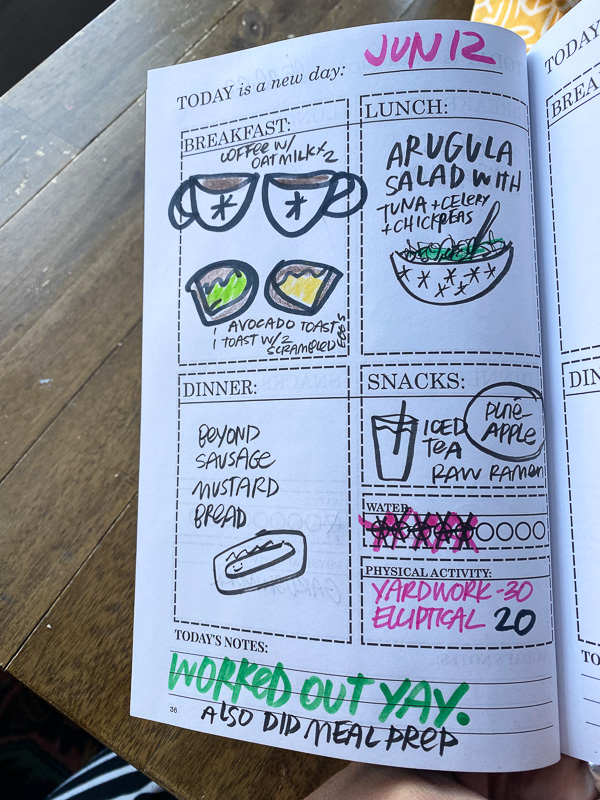 TODAY is a new day: JUN 12
BREAKFAST:
COFFEE W/
OATMILK x 2
AVOCADO TOAST
1 TOAST W/ 2
SCRAMBLED EGGS
LUNCH:
ARUGULA
SALAD WITH
TUNA + CELERY
+ CHICKPEAS
DINNER:
BEYOND
SAUSAGE
MUSTARD
BREAD
SNACKS:
ICED
TEA
PINE-
APPLE
RAW RAMEN
WATER:
PHYSICAL ACTIVITY:
YARDWORK - 30
ELLIPTICAL 20
TODAY'S NOTES:
WORKED OUT YAY.
ALSO DID MEAL PREP
36
TODAY
BREA
DIN
TO